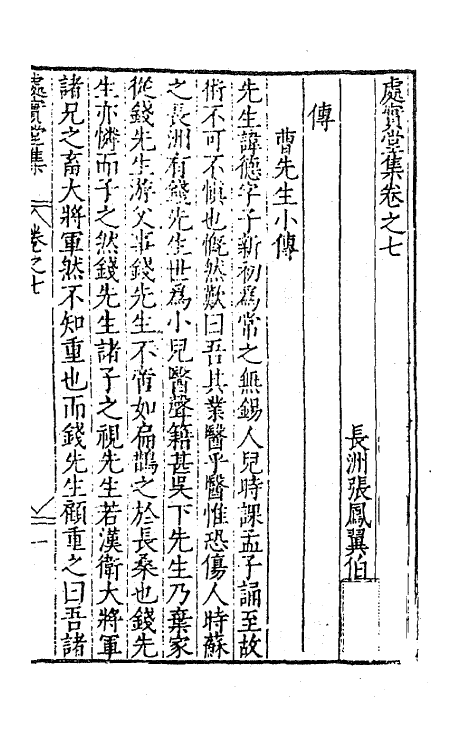 處實堂集卷之七
長洲張鳳翼伯
傳
曹先生小傳
先生諱德字子新初爲常之無錫人兒時課孟子誦至故
術不可不慎也慨然歎曰吾其業醫乎醫惟恐傷人時蘇
之長洲有錢先生世爲小兒醫聲籍甚吳下先生乃棄家
從錢先生游父事錢先生不啻如扁鵲之於長桑也錢先
生亦憐而子之然錢先生諸子之視先生若漢衛大將軍
諸兄之畜大將軍然不知重也而錢先生顧重之曰吾諸
處實堂集 卷之七 一